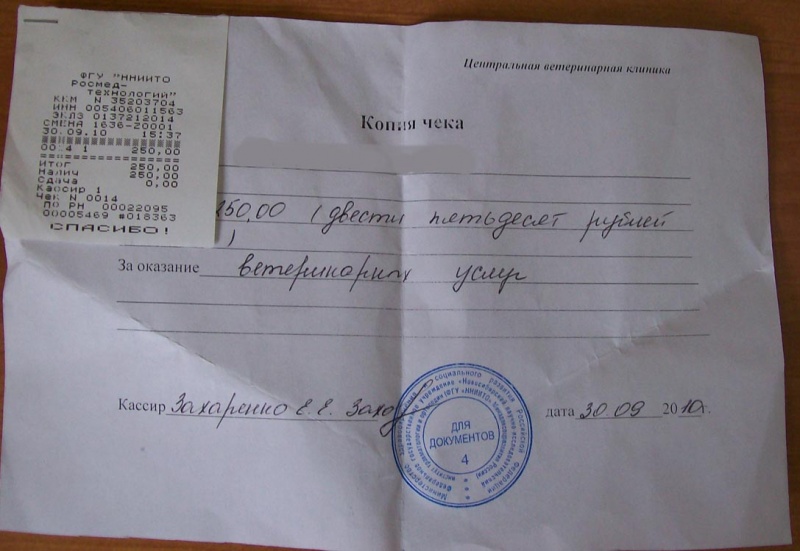 ФГУ "ННИИТО
Росмед-
технологий"
ККМ N 35203704
ИНН 005406011563
ЭКЛЗ 0137212014
СМЕНА 1636-Z0001
30.09.10 15:37
00:4 1 250,00
Итог 250,00
Налич 250,00
Сдача 0,00
Кассир 1
Чек N 0014
ПО РН 00022095
00005469 #018363
СПАСИБО!
Центральная ветеринарная клиника
Копия чека
250,00 (двести пятьдесят рублей
)
За оказание ветеринарных услуг
Кассир Захаренко Е.Е.
дата 30 09 2010г.
ДЛЯ
ДОКУМЕНТОВ
4